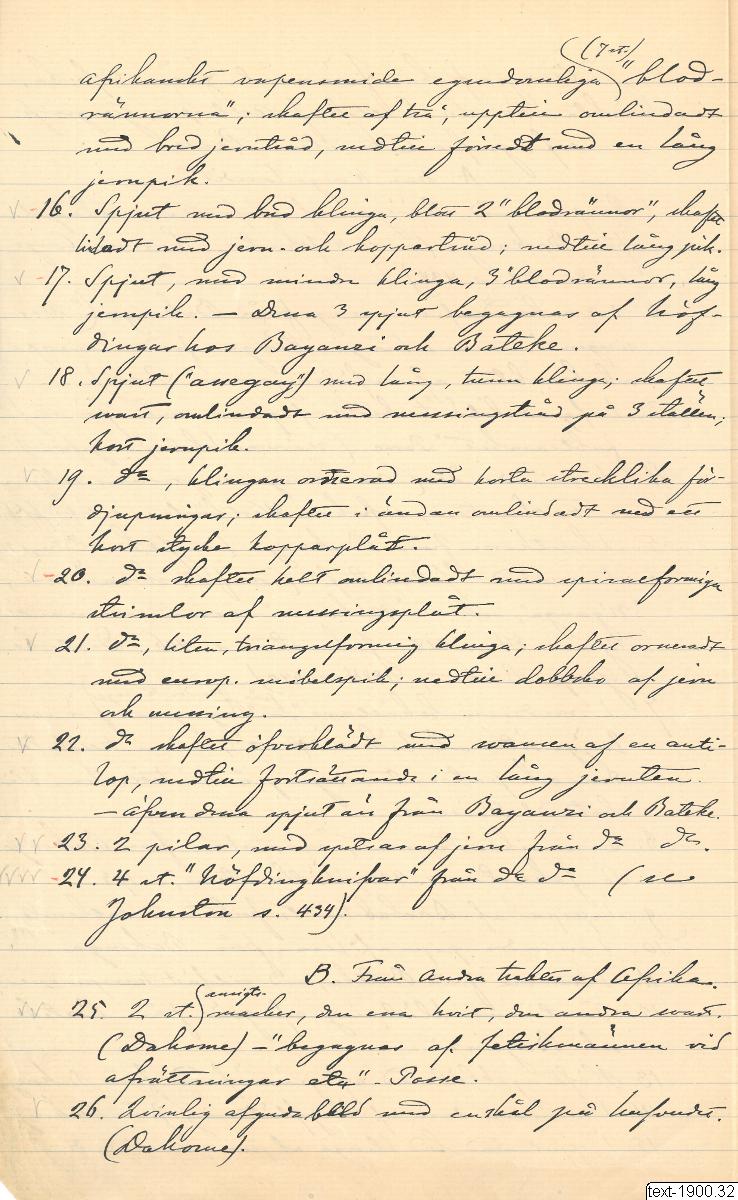 (7 st.)
afrikanska vapensmide egendomliga "blod-
rännorna"; skaftet af trä, upptill omlindadt
med bred jerntråd, nedtill försedt med en lång
jernpik.
16. Spjut med bred klinga, blott 2 "blodrännor", skaftet
lindadt med jern- och koppartråd; nedtill lång pik.
17. Spjut, med mindre klinga, 3 "blodrännor, lång
jernpik. — Dessa 3 spjut begagnas af höf-
dingar hos Bayanzi och Bateke.
18. Spjut ("assegaj") med lång, tunn klinga; skaftet
svart, omlindadt med messingstråd på 3 ställen;
kort jernpik.
19. do, klingan ornerad med korta strecklika för-
djupningar; skaftet i ändan omlindadt med ett
kort stycke kopparplåt.
20. do skaftet helt omlindadt med spiralformiga
strimlor af messingsplåt.
21. do, liten, triangelformig klinga; skaftet orneradt
med europ. möbelspik; nedtill dobbsko af jern
och messing.
22. do skaftet öfverklädt med svansen af en anti-
lop, nedtill fortsättande i en lång jernten.
— äfven dessa spjut äro från Bayanzi och Bateke.
23. 2 pilar, med spetsar af jern från do do.
24. 4 st. "höfdingknifvar" från do do (se
Johnston s. 434).
B. Från andra trakter af Afrika.
ansigts-
25. 2 st. masker, den ena hvit, den andra svart.
(Dahome) — "begagnas af fetischmännen vid
afrättningar etc" - Posse.
26. Qvinlig afgudabild med en skål på hufvudet.
(Dahome).
text-1900.32